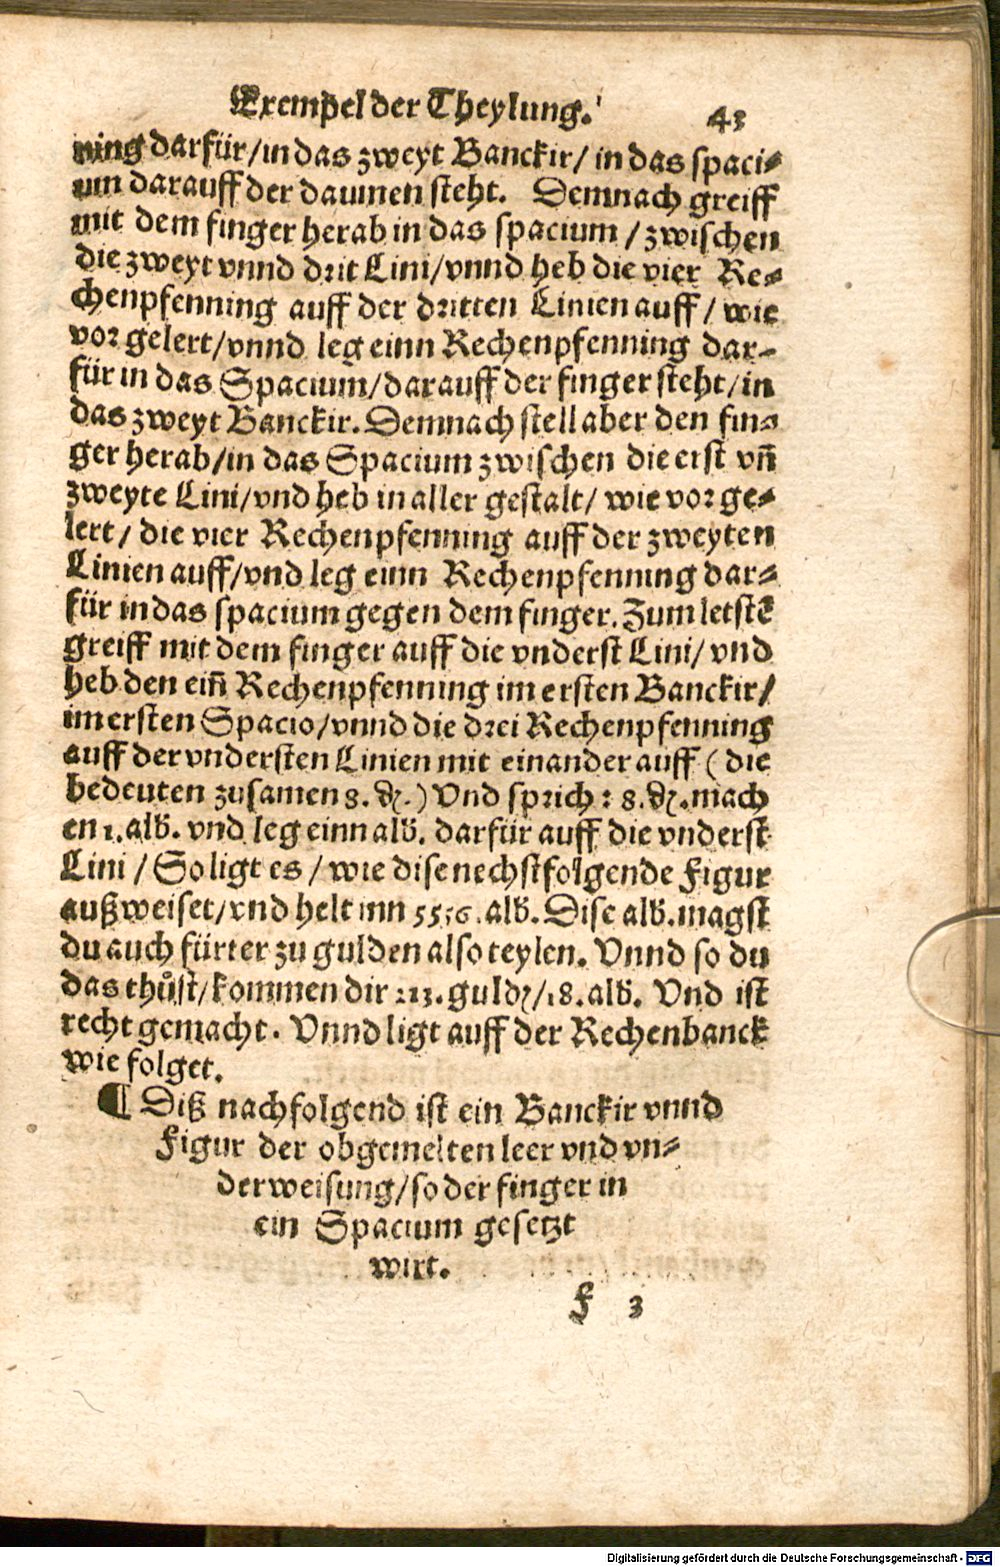 Exempel der Theylung. 43
ning darfür/in das zweyt Banckir/ in das spaci⸗
um darauff der daumen steht. Demnach greiff
mit dem finger herab in das spacium / zwischen
die zweyt vnnd drit Lini/vnnd heb die vier Re⸗
chenpfenning auff der dritten Linien auff / wie
vor gelert/vnnd leg einn Rechenpfenning dar⸗
für in das Spacium/darauff der finger steht/in
das zweyt Banckir. Demnach stell aber den fin⸗
ger herab/in das Spacium zwischen die erst vñ
zweyte Lini/vnd heb in aller gestalt/ wie vor ge⸗
lert/ die vier Rechenpfenning auff der zweyten
Linien auff/vnd leg einn Rechenpfenning dar⸗
für in das spacium gegen dem finger. Zum letstē
greiff mit dem finger auff die vnderst Lini/ vnd
heb den eiñ Rechenpfenning im ersten Banckir/
im ersten Spacio/vnnd die drei Rechenpfenning
auff der vndersten Linien mit einander auff ( die
bedeuten zusamen 8. ₰.) Vnd sprich : 8. ₰. mach
en 1. alb. vnd leg einn alb. darfür auff die vnderst
Lini / So ligt es / wie dise nechstfolgende Figur
außweiset/vnd helt inn 5556. alb. Dise alb. magst
du auch fürter zu gulden also teylen. Vnnd so du
das thůst/kommen dir 213. guldē/18. alb. Vnd ist
recht gemacht. Vnnd ligt auff der Rechenbanck
wie folget.
¶ Diß nachfolgend ist ein Banckir vnnd
Figur der obgemelten leer vnd vn⸗
derweisung/so der finger in
ein Spacium gesetzt
wirt.
f 3
Digitalisierung gefördert durch die Deutsche Forschungsgemeinschaft - DFG